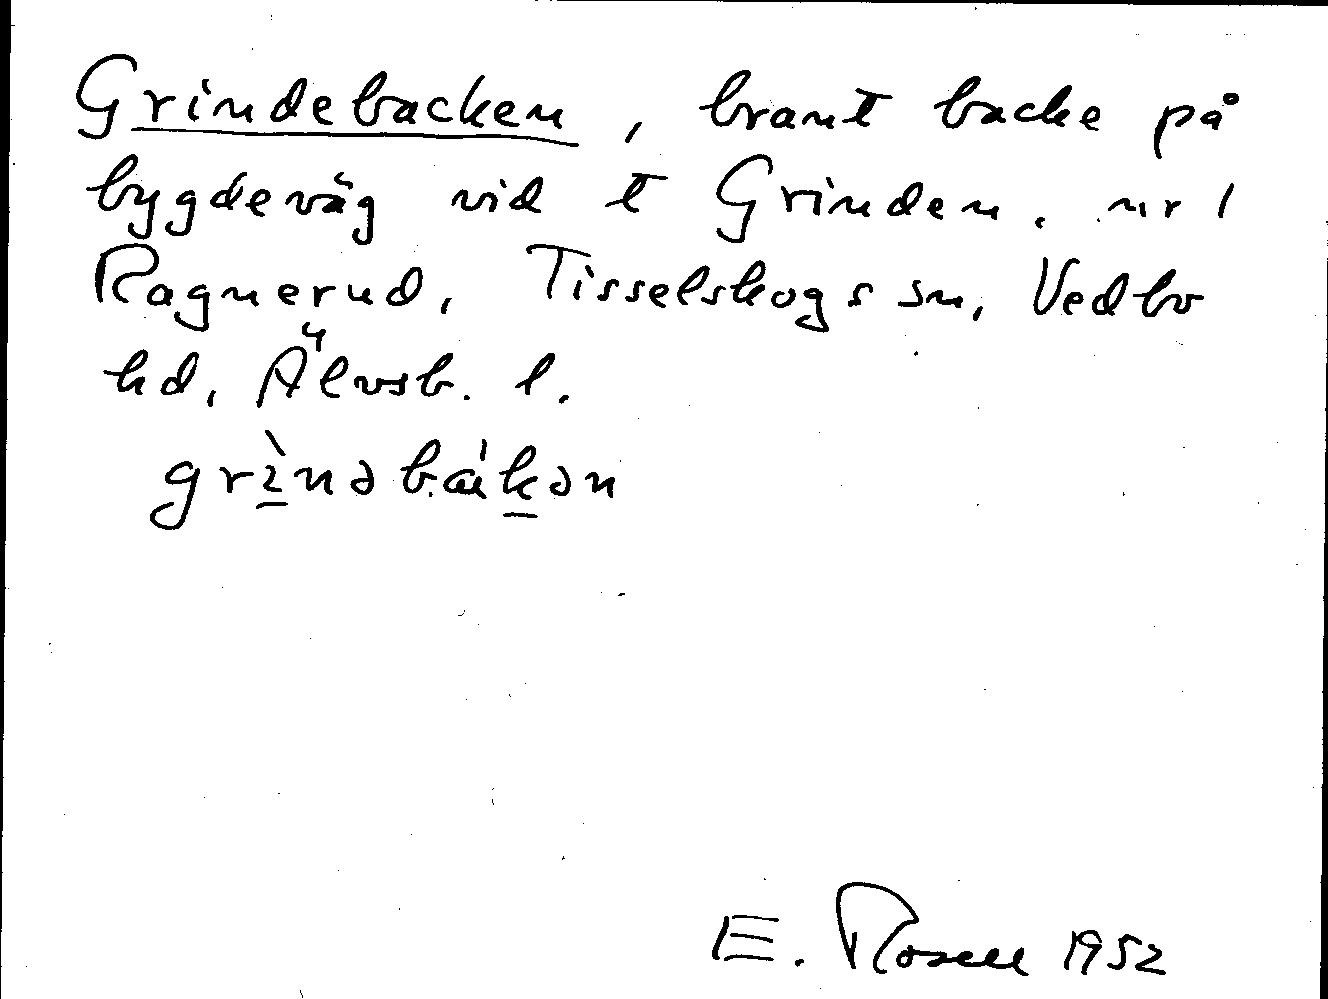 Grindebacken, brant backe på
bygdeväg vid t Grinden. nr 1
Ragnerud, Tisselskogs sn, Vedbo
hd, Älvsb. l.
grìnəbákən
E. Rosell 1952